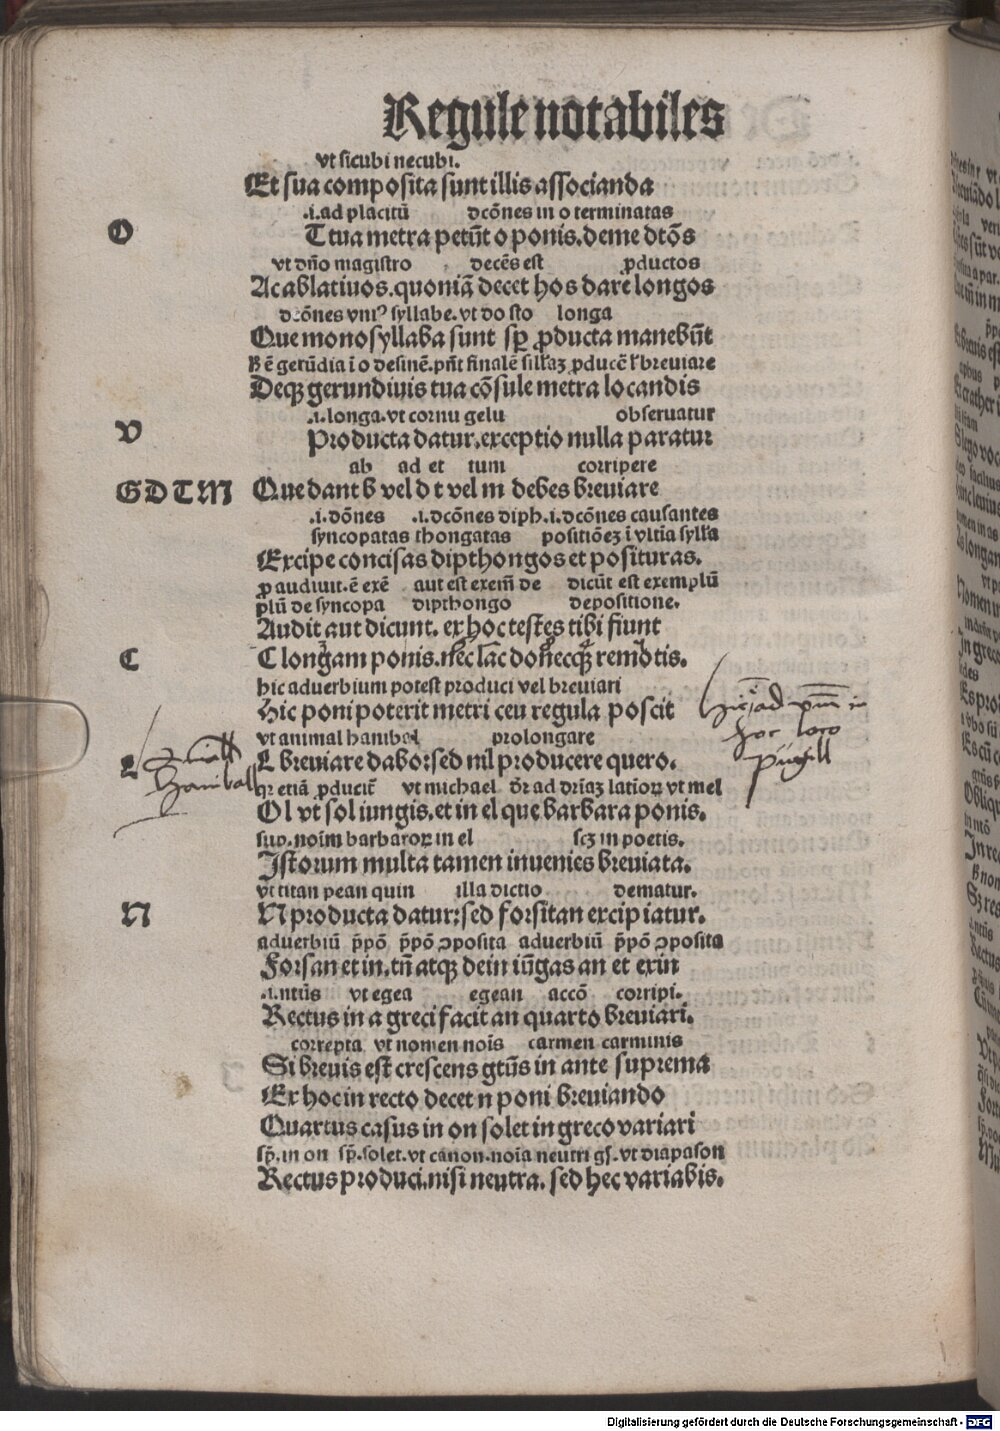 Regule notabiles
vt sicubi necubi.
Et sua composita sunt illis associanda
.i. ad placitū dcōnes in o terminatas
O T tua metra petūt o ponis. deme dtōs
vt dn̄o magistro decēs est ꝓductos
Ac ablatiuos. quoniā decet hos darē longos
dcōnes vniꝰ syllabe. vt do sto longa
Que monosyllaba sunt sꝑ ꝓducta manebūt
Deqꝫ gerundiuis tua cōsule metra locandis
.i. longa. vt cornu gelu obseruatur
V Producta datur. exceptio nulla paratur
ab ad et tum corripere
B D T M Que dant b vel d t vel m debes breuiare
.i. dōnes .i. dcōnes diph. .i. dcōnes causantes
syncopatas thongatas positiōeꝫ ī vltīa sylľa
Excipe concisas dipthongos et posituras.
ꝓ audiuit. ē exē aut est exem̄ de dicūt est exemplū
plū de syncopa dipthongo depositione.
Audit aut dicunt. ex hoc testes tibi fiunt
C C longam ponis. nec lac donecqꝫ remotis.
hic aduerbium potest produci vel breuiari
Hic poni poterit metri ceu regula poscit
vt animal hanibal prolongare
L L breuiare dabo: sed nil producere quero.
qr etiā ꝓducit̄ vt michael
Ol vt sol iungis. et in el que barbara ponis.
sup. noīm barbaroꝝ in el scꝫ in poetis.
Istorum multa tamen inuenies breuiata.
vt titan pean quin illa dictio dematur.
N N producta datur: sed forsitan excipiatur.
aduerbiū p̄pō p̄pō ꝯposita aduerbiū p̄pō ꝯposita
Forsan et in. tn̄ atqꝫ dein iūgas an et exin
.i. ntūs vt egea egean accō corripi.
Rectus in a greci facit an quarto breuiari.
correpta vt nomen nois carmen carminis
Si breuis est crescens gtūs in ante suprema
Ex hoc in recto decet n poni breuiando
Quartus casus in on solet in greco variari
sꝑ. in on sꝑ. solet. vt canon. noīa neutri gs̄. vt diapason
Rectus produci. nisi neutra. sed hec variabis.
hoc loco
Digitalisierung gefördert durch die Deutsche Forschungsgemeinschaft - DFG